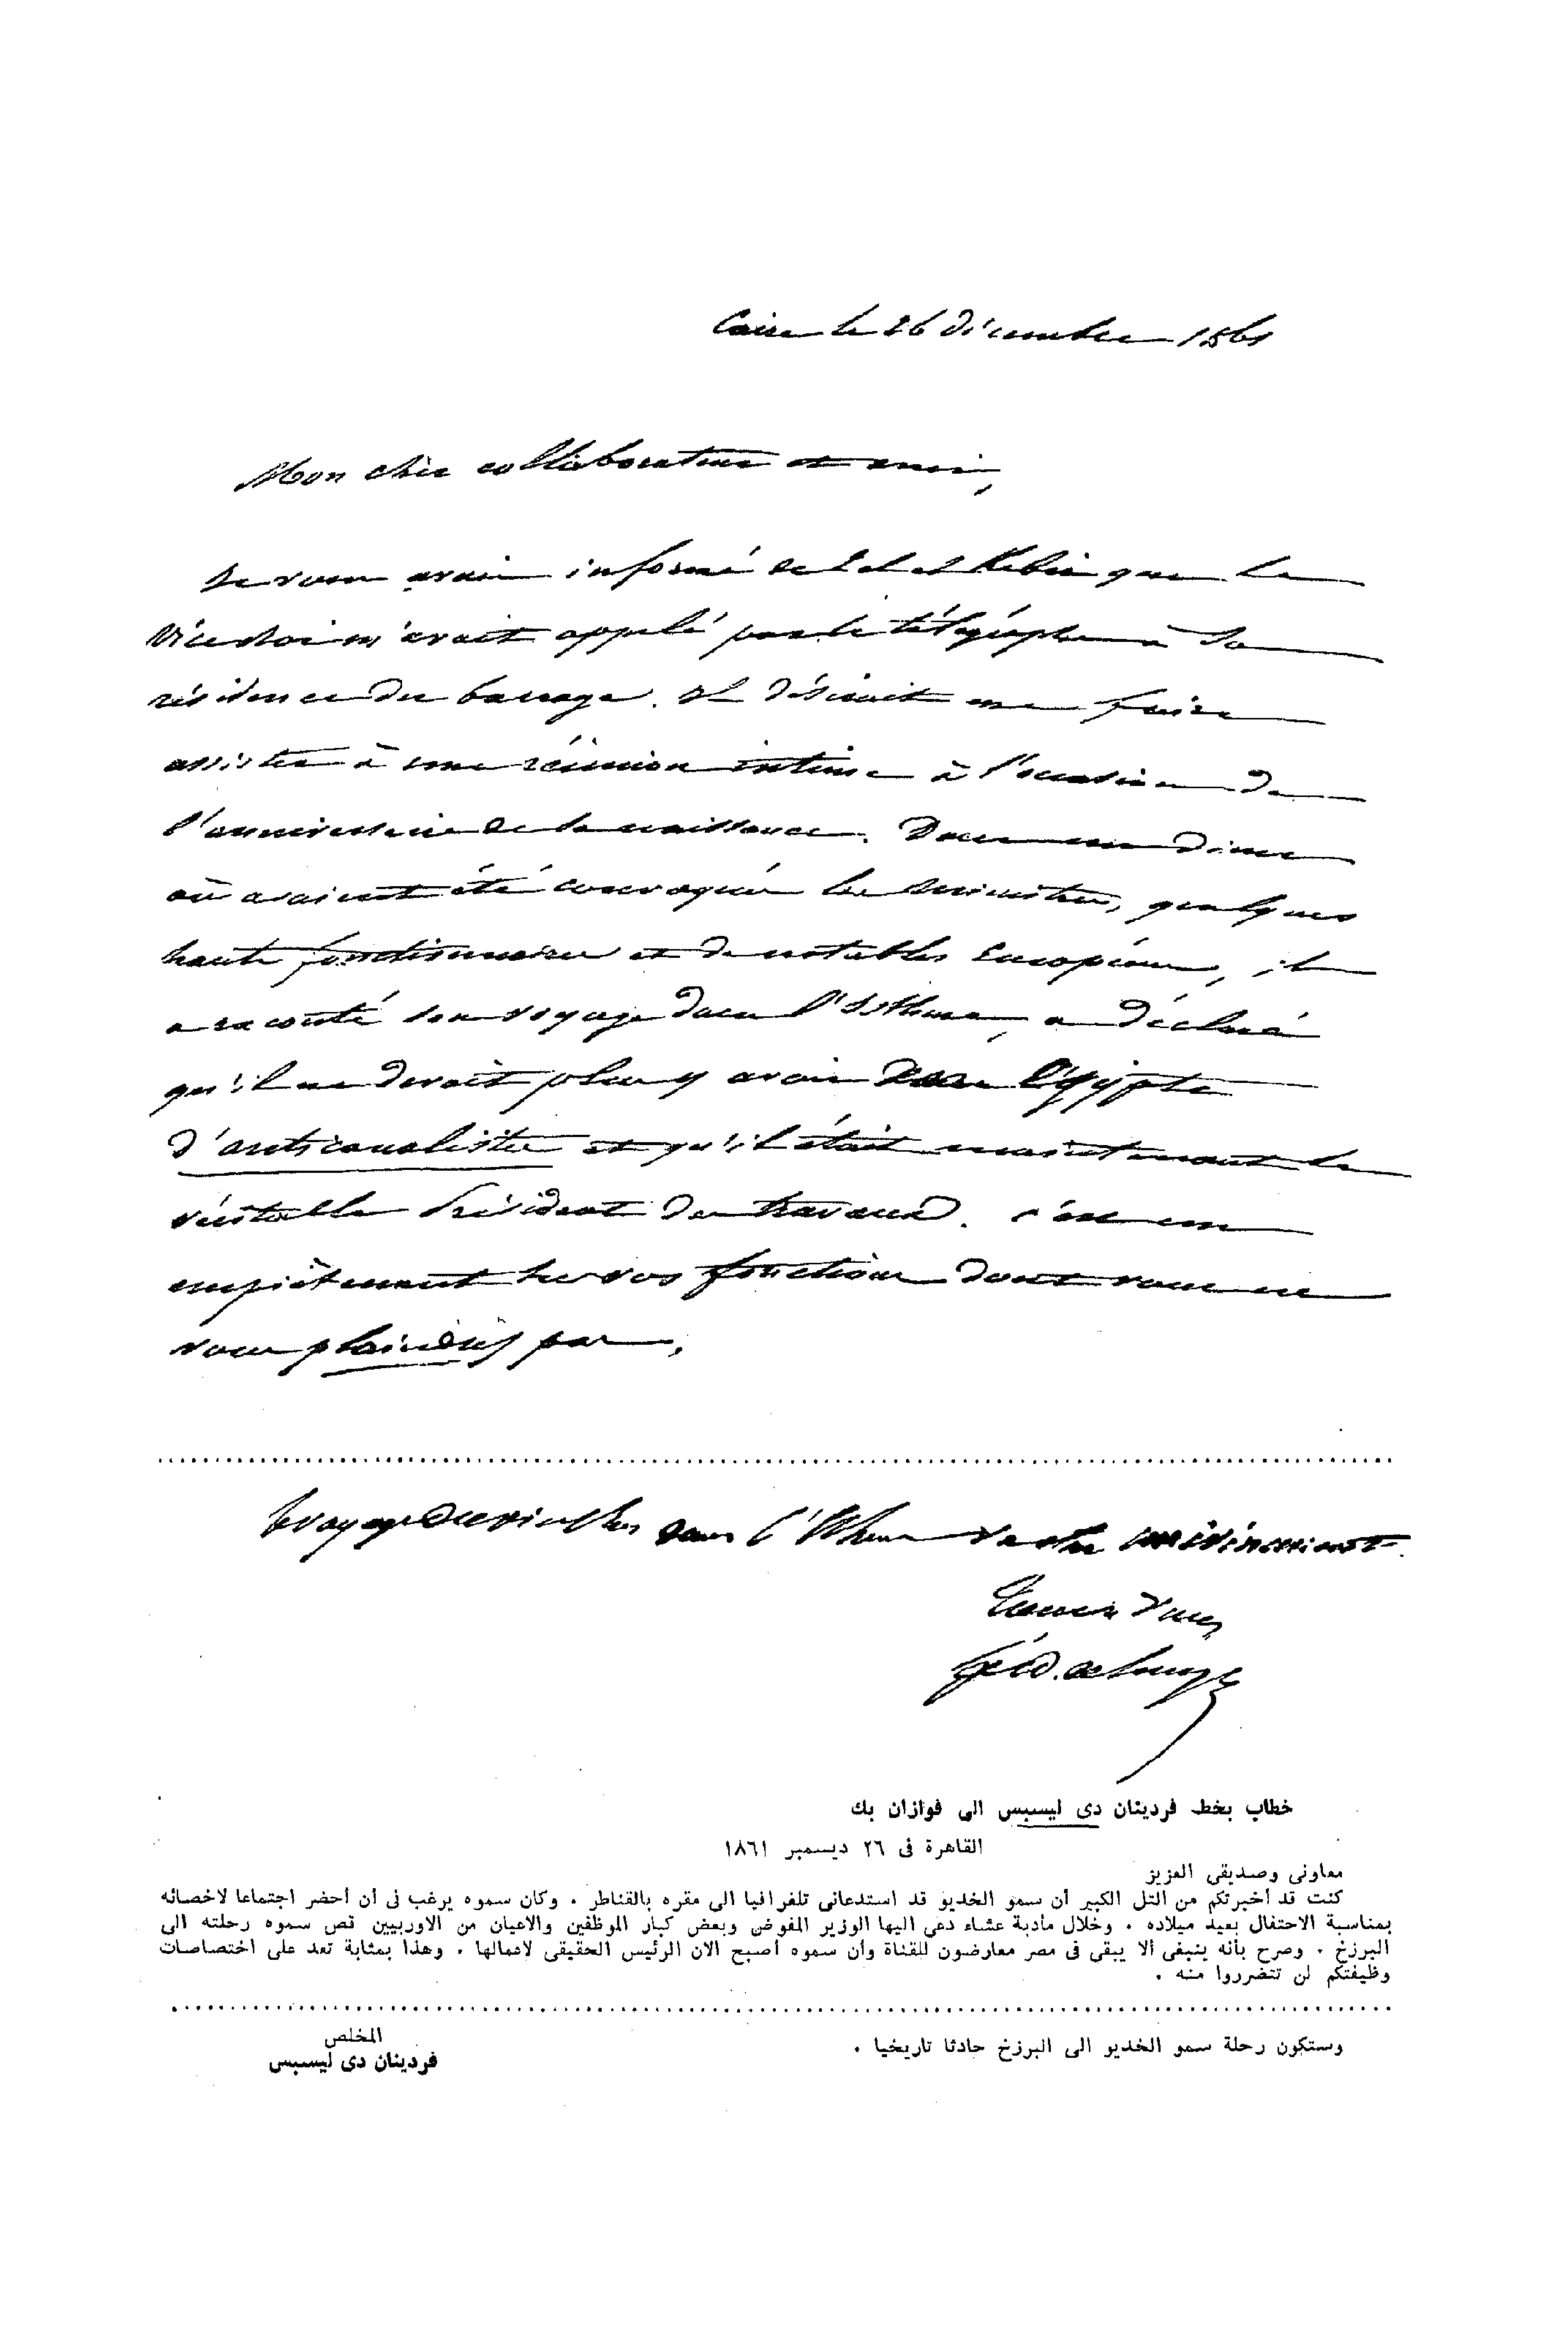 Caire le 26 décembre 1861
Mon cher collaborateur et ami,
Je vous avais informé de Tel el Kebir que le
Vice Roi m'avait appelé par le télégraphe à sa
résidence du barrage. Il désirait me faire
assister à une réunion intime à l'occasion de
l'anniversaire de sa naissance. Dans un diner
où avaient été convoqués les ministres, quelques
hauts fonctionnaires et de notables Européens, il
a raconté son voyage dans l'Isthme, a déclaré
qu'il ne devait plus y avoir dans l'Egypte
d'anticanalistes et qu'il était maintenant le
véritable Président des travaux. c'est un
empiètement sur vos fonctions dont vous ne
vous plaindrez pas.
Le voyage du vice Roi dans l'Isthme va être un événement.
Tout à vous
Ferd. de Lesseps
خطاب بخط فردينان دى ليسبس الى فوازان بك
القاهرة فى ٢٦ ديسمبر ١٨٦١
معاونى وصديقى العزيز
كنت قد أخبرتكم من التل الكبير أن سمو الخديو قد استدعانى تلغرافيا الى مقره بالقناطر . وكان سموه يرغب فى أن أحضر اجتماعا لاخصائه
بمناسبة الاحتفال بعيد ميلاده . وخلال مأدبة عشاء دعى اليها الوزير المفوض وبعض كبار الموظفين والاعيان من الاوربيين قص سموه رحلته الى
البرزخ . وصرح بأنه ينبغى ألا يبقى فى مصر معارضون للقناة وأن سموه أصبح الان الرئيس الحقيقى لاعمالها . وهذا بمثابة تعد على اختصاصات
وظيفتكم لن تتضرروا منه .
وستكون رحلة سمو الخديو الى البرزخ حادثا تاريخيا .
المخلص
فردينان دى ليسبس